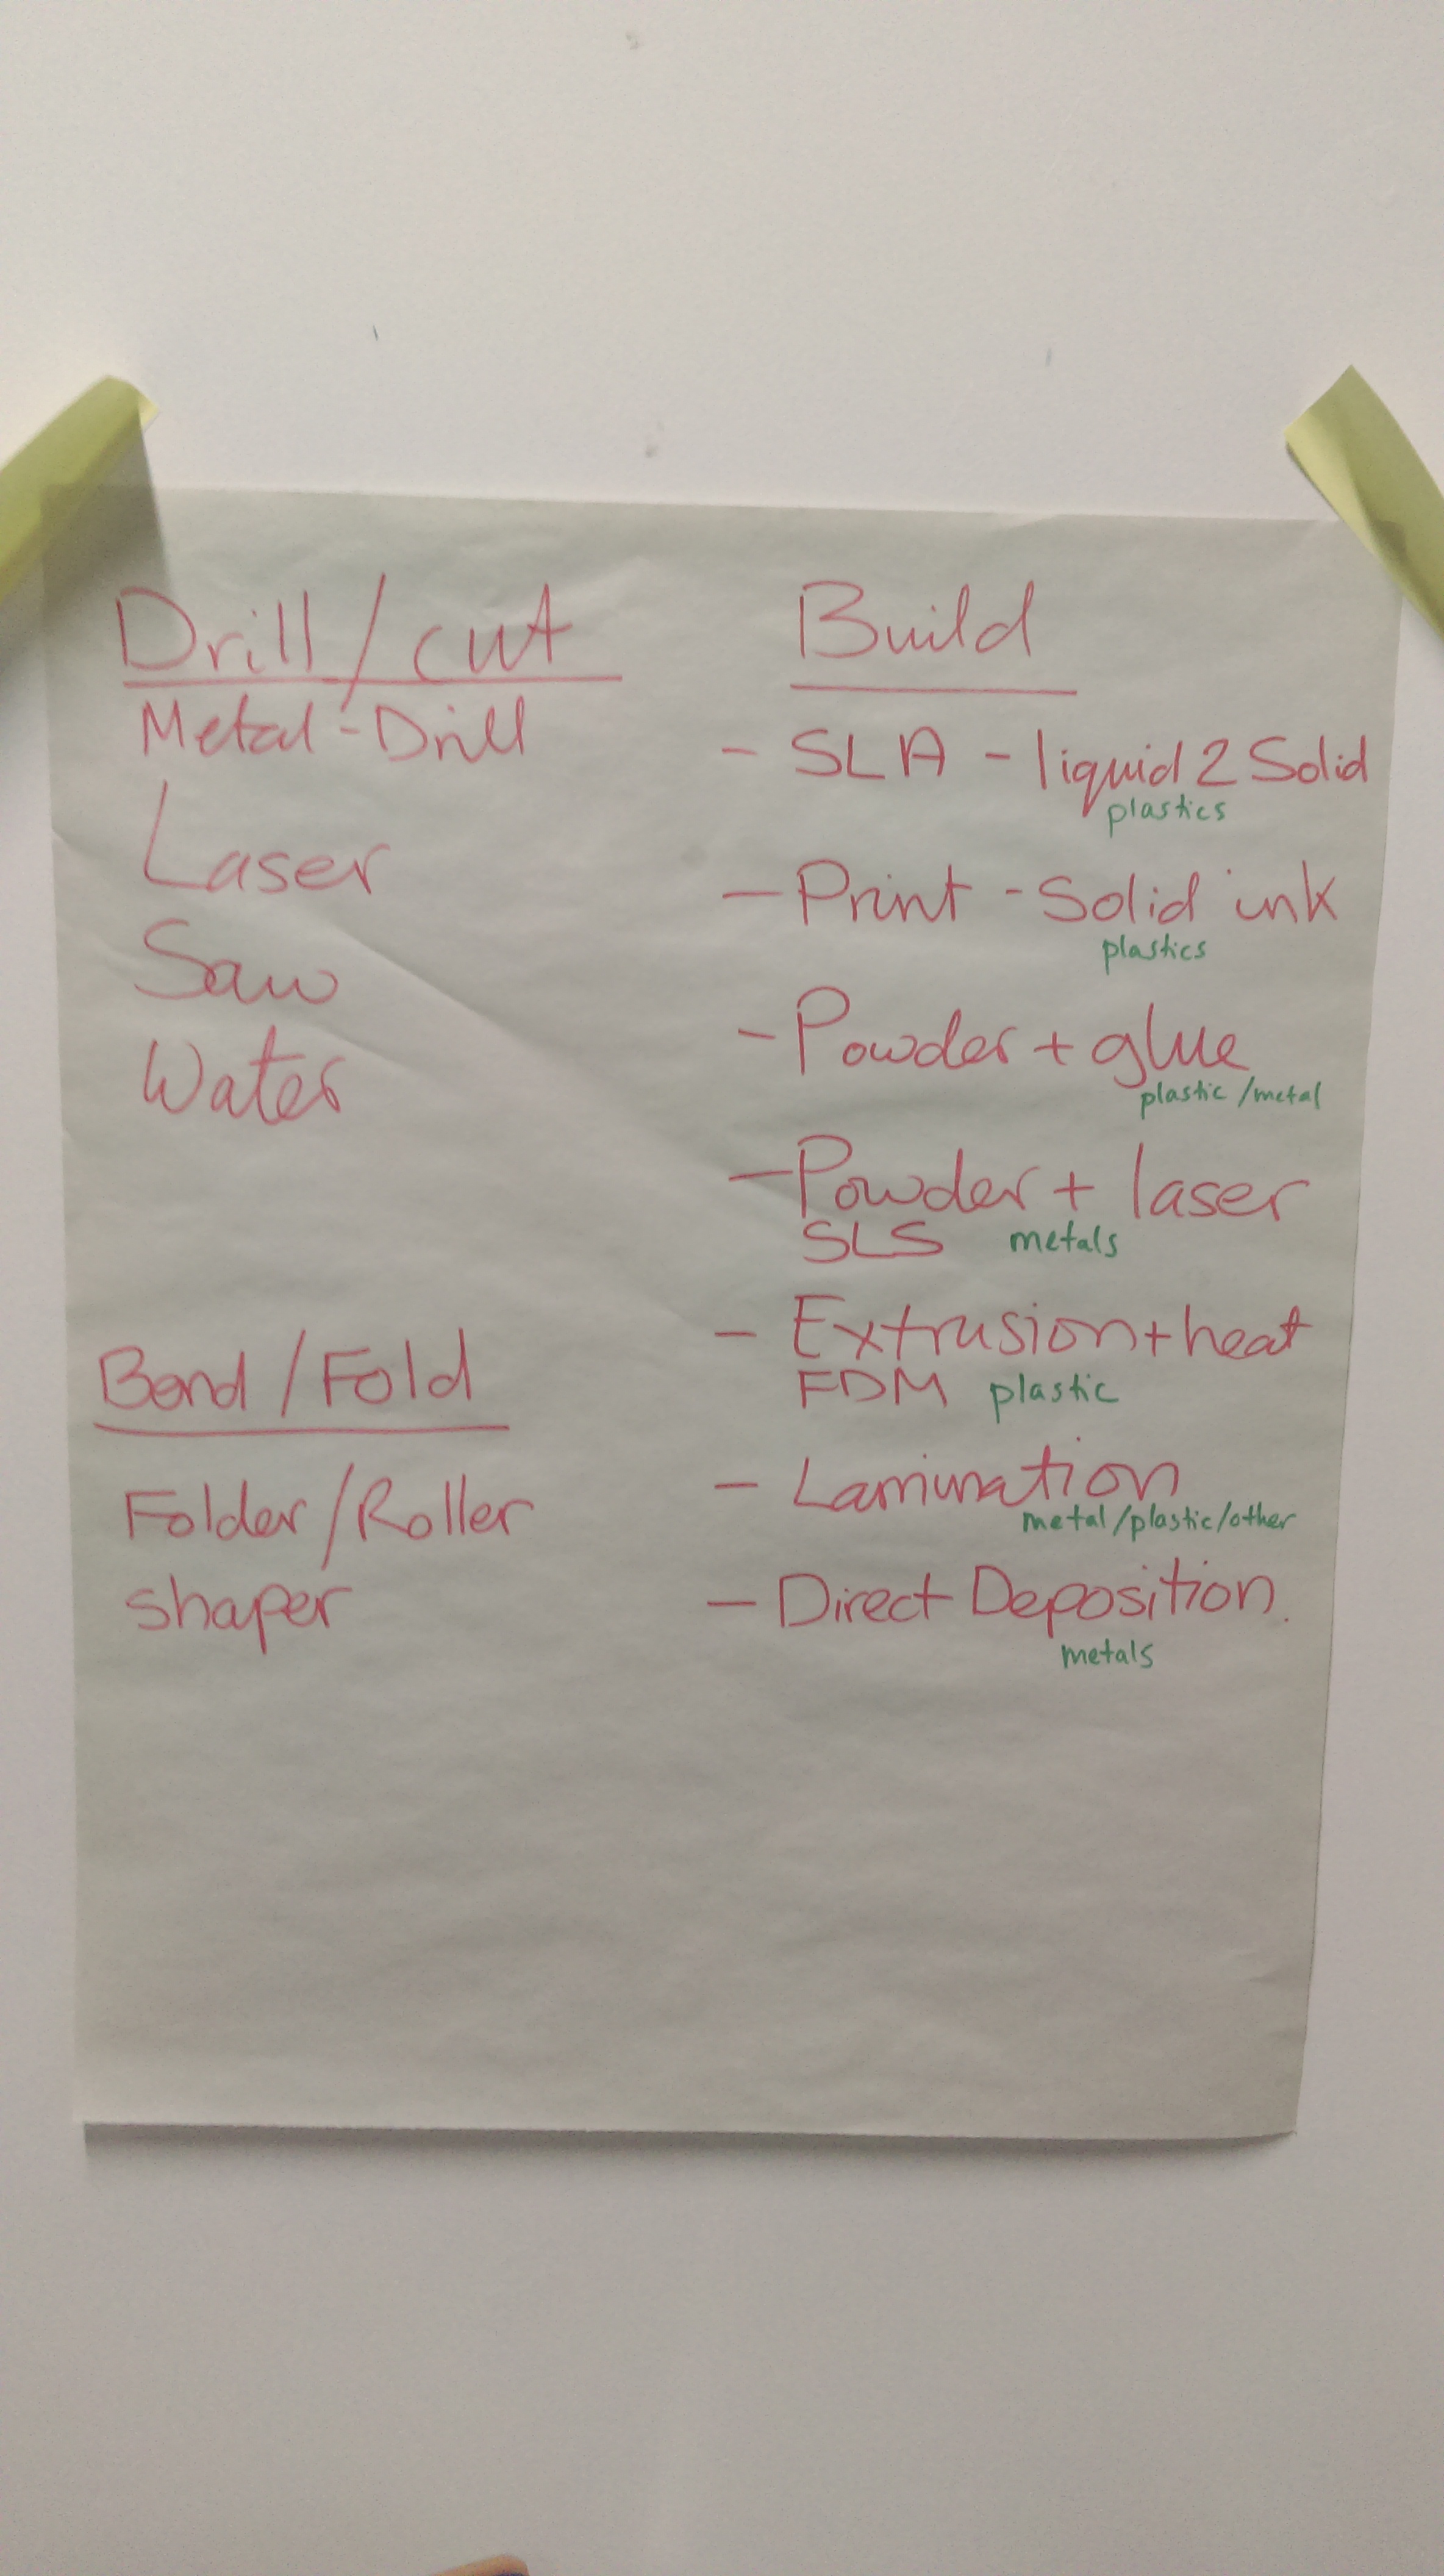 Drill/cut
Metal-Drill
Laser
Saw
Water
Bend/Fold
Folder/Roller
shaper
Build
- SLA - liquid 2 Solid
plastics
- Print - Solid ink
plastics
- Powder + glue
plastic/metal
- Powder + laser
SLS metals
- Extrusion + heat
FDM plastic
- Lamination
metal/plastic/other
- Direct Deposition.
metals